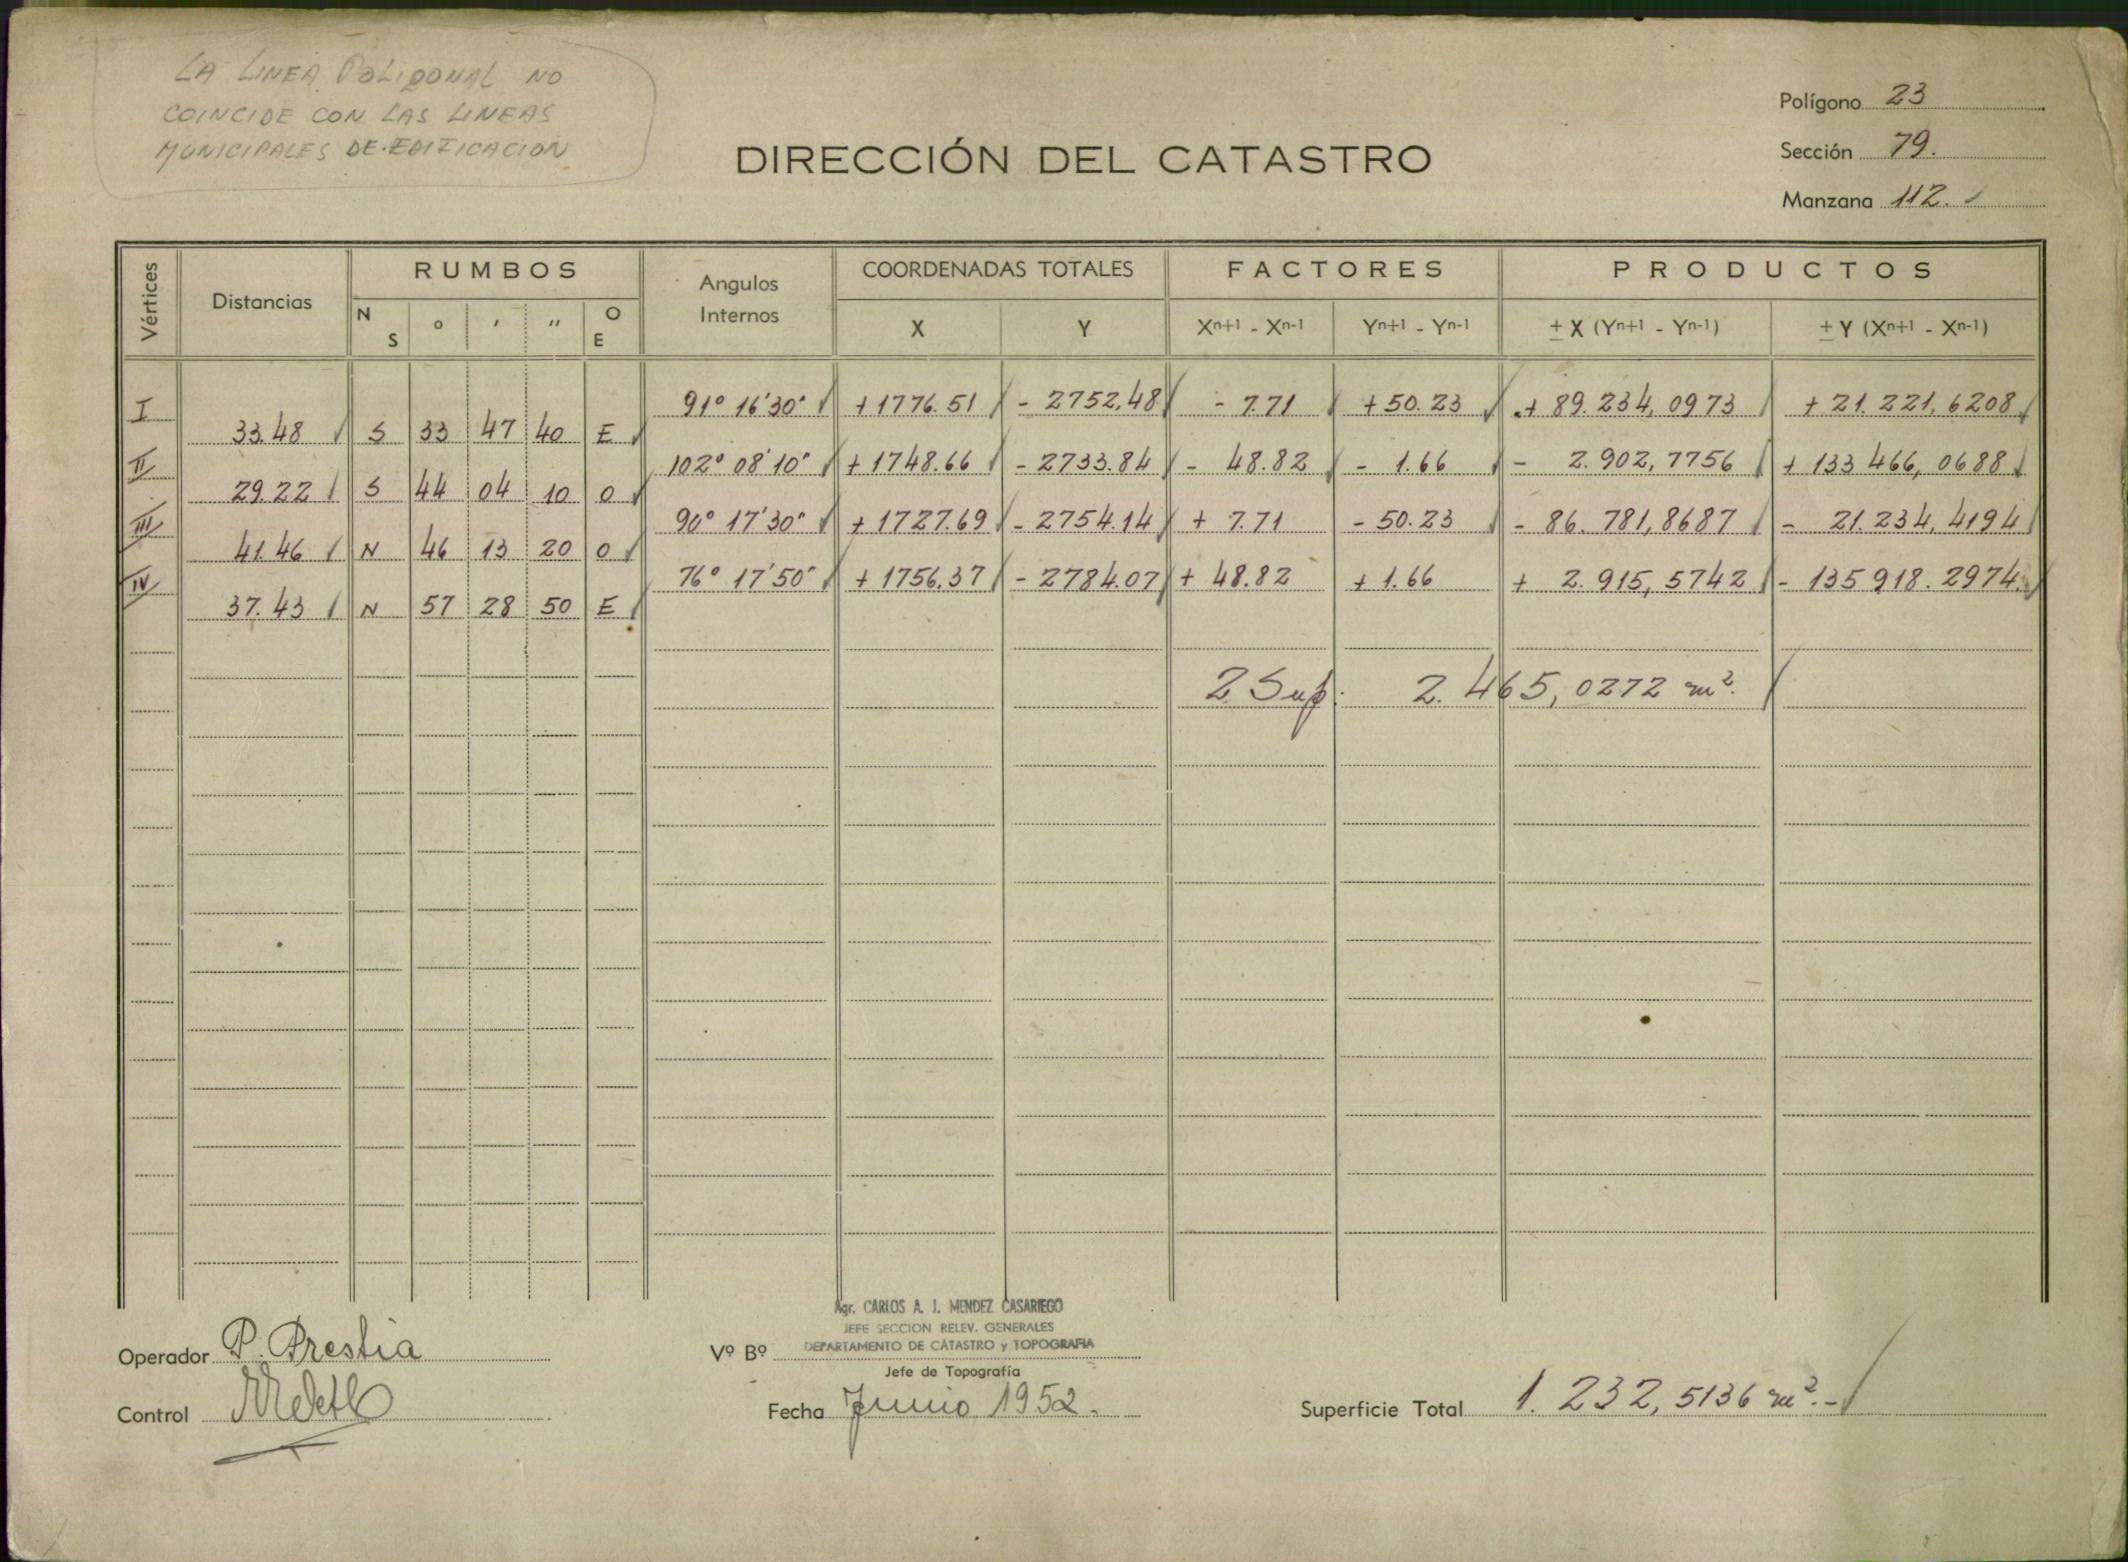 LA LINEA POLIGONAL NO
COINCIDE CON LAS LINEAS
MUNICIPALES DE EDIFICACION
Polígono 23
Sección 79.
Manzana 112.
DIRECCIÓN DEL CATASTRO
Vértices Distancias RUMBOS Angulos Internos COORDENADAS TOTALES FACTORES PRODUCTOS
N S ° ' " O E X Y Xn+1 - Xn-1 Yn+1 - Yn-1 ± X (Yn+1 - Yn-1) ± Y (Xn+1 - Xn-1)
I 91° 16' 30" +1776.51 - 2752,48 - 7.71 +50.23 + 89.234,0973 + 21.221,6208
33.48 S 33 47 40 E
II 102° 08' 10" +1748.66 - 2733.84 - 48.82 - 1.66 - 2.902,7756 + 133 466,0688
29.22 S 44 04 10 O
III 90° 17' 30" +1727.69 - 2754.14 + 7.71 - 50.23 - 86.781,8687 - 21.234,4194
41.46 N 46 13 20 O
IV 76° 17' 50" + 1756.37 - 2784.07 + 48.82 + 1.66 + 2.915,5742 - 135 918.2974.
37.43 N 57 28 50 E
2 Sup: 2.465,0272 m².
Agr. CARLOS A. J. MENDEZ CASARIEGO
JEFE SECCION RELEV. GENERALES
DEPARTAMENTO DE CATASTRO y TOPOGRAFIA
Operador P. Prestia
Vº Bº
Jefe de Topografía
Control
Fecha Junio 1952.
Superficie Total 1.232,5136 m².-